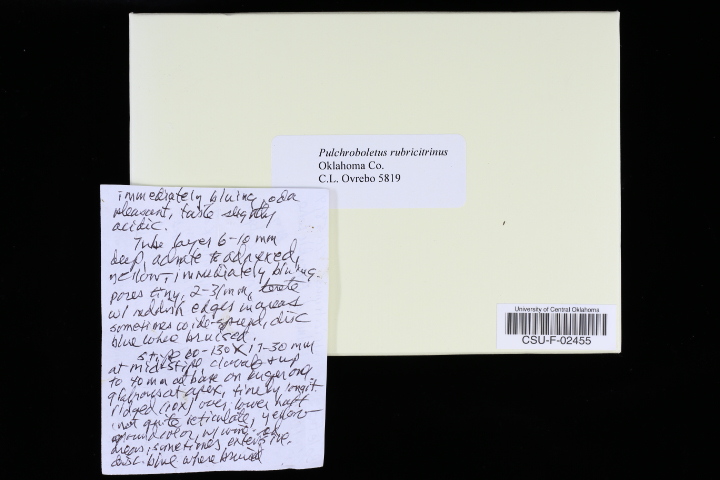 Pulchroboletus rubricitrinus
Oklahoma Co.
C.L. Ovrebo 5819
University of Central Oklahoma
CSU-F-02455
immediately bluing, odor
pleasant, taste slightly
acidic.
Tube layer 6-10 mm
deep, adnate to adnexed,
yellow, immediately bluing.
pores tiny, 2-3/mm,
w/ reddish edges in areas
sometimes wide-spread, disc
blue where bruised.
Stipe 60-130 X 17-30 mm
at mid-stipe clavate & up
to 40 mm at base on larger ones
glabrous at apex, finely longit.
ridged (10X) over lower half
not quite reticulate, yellow
ground color, w/
areas, sometimes extensive,
disc. blue where bruised